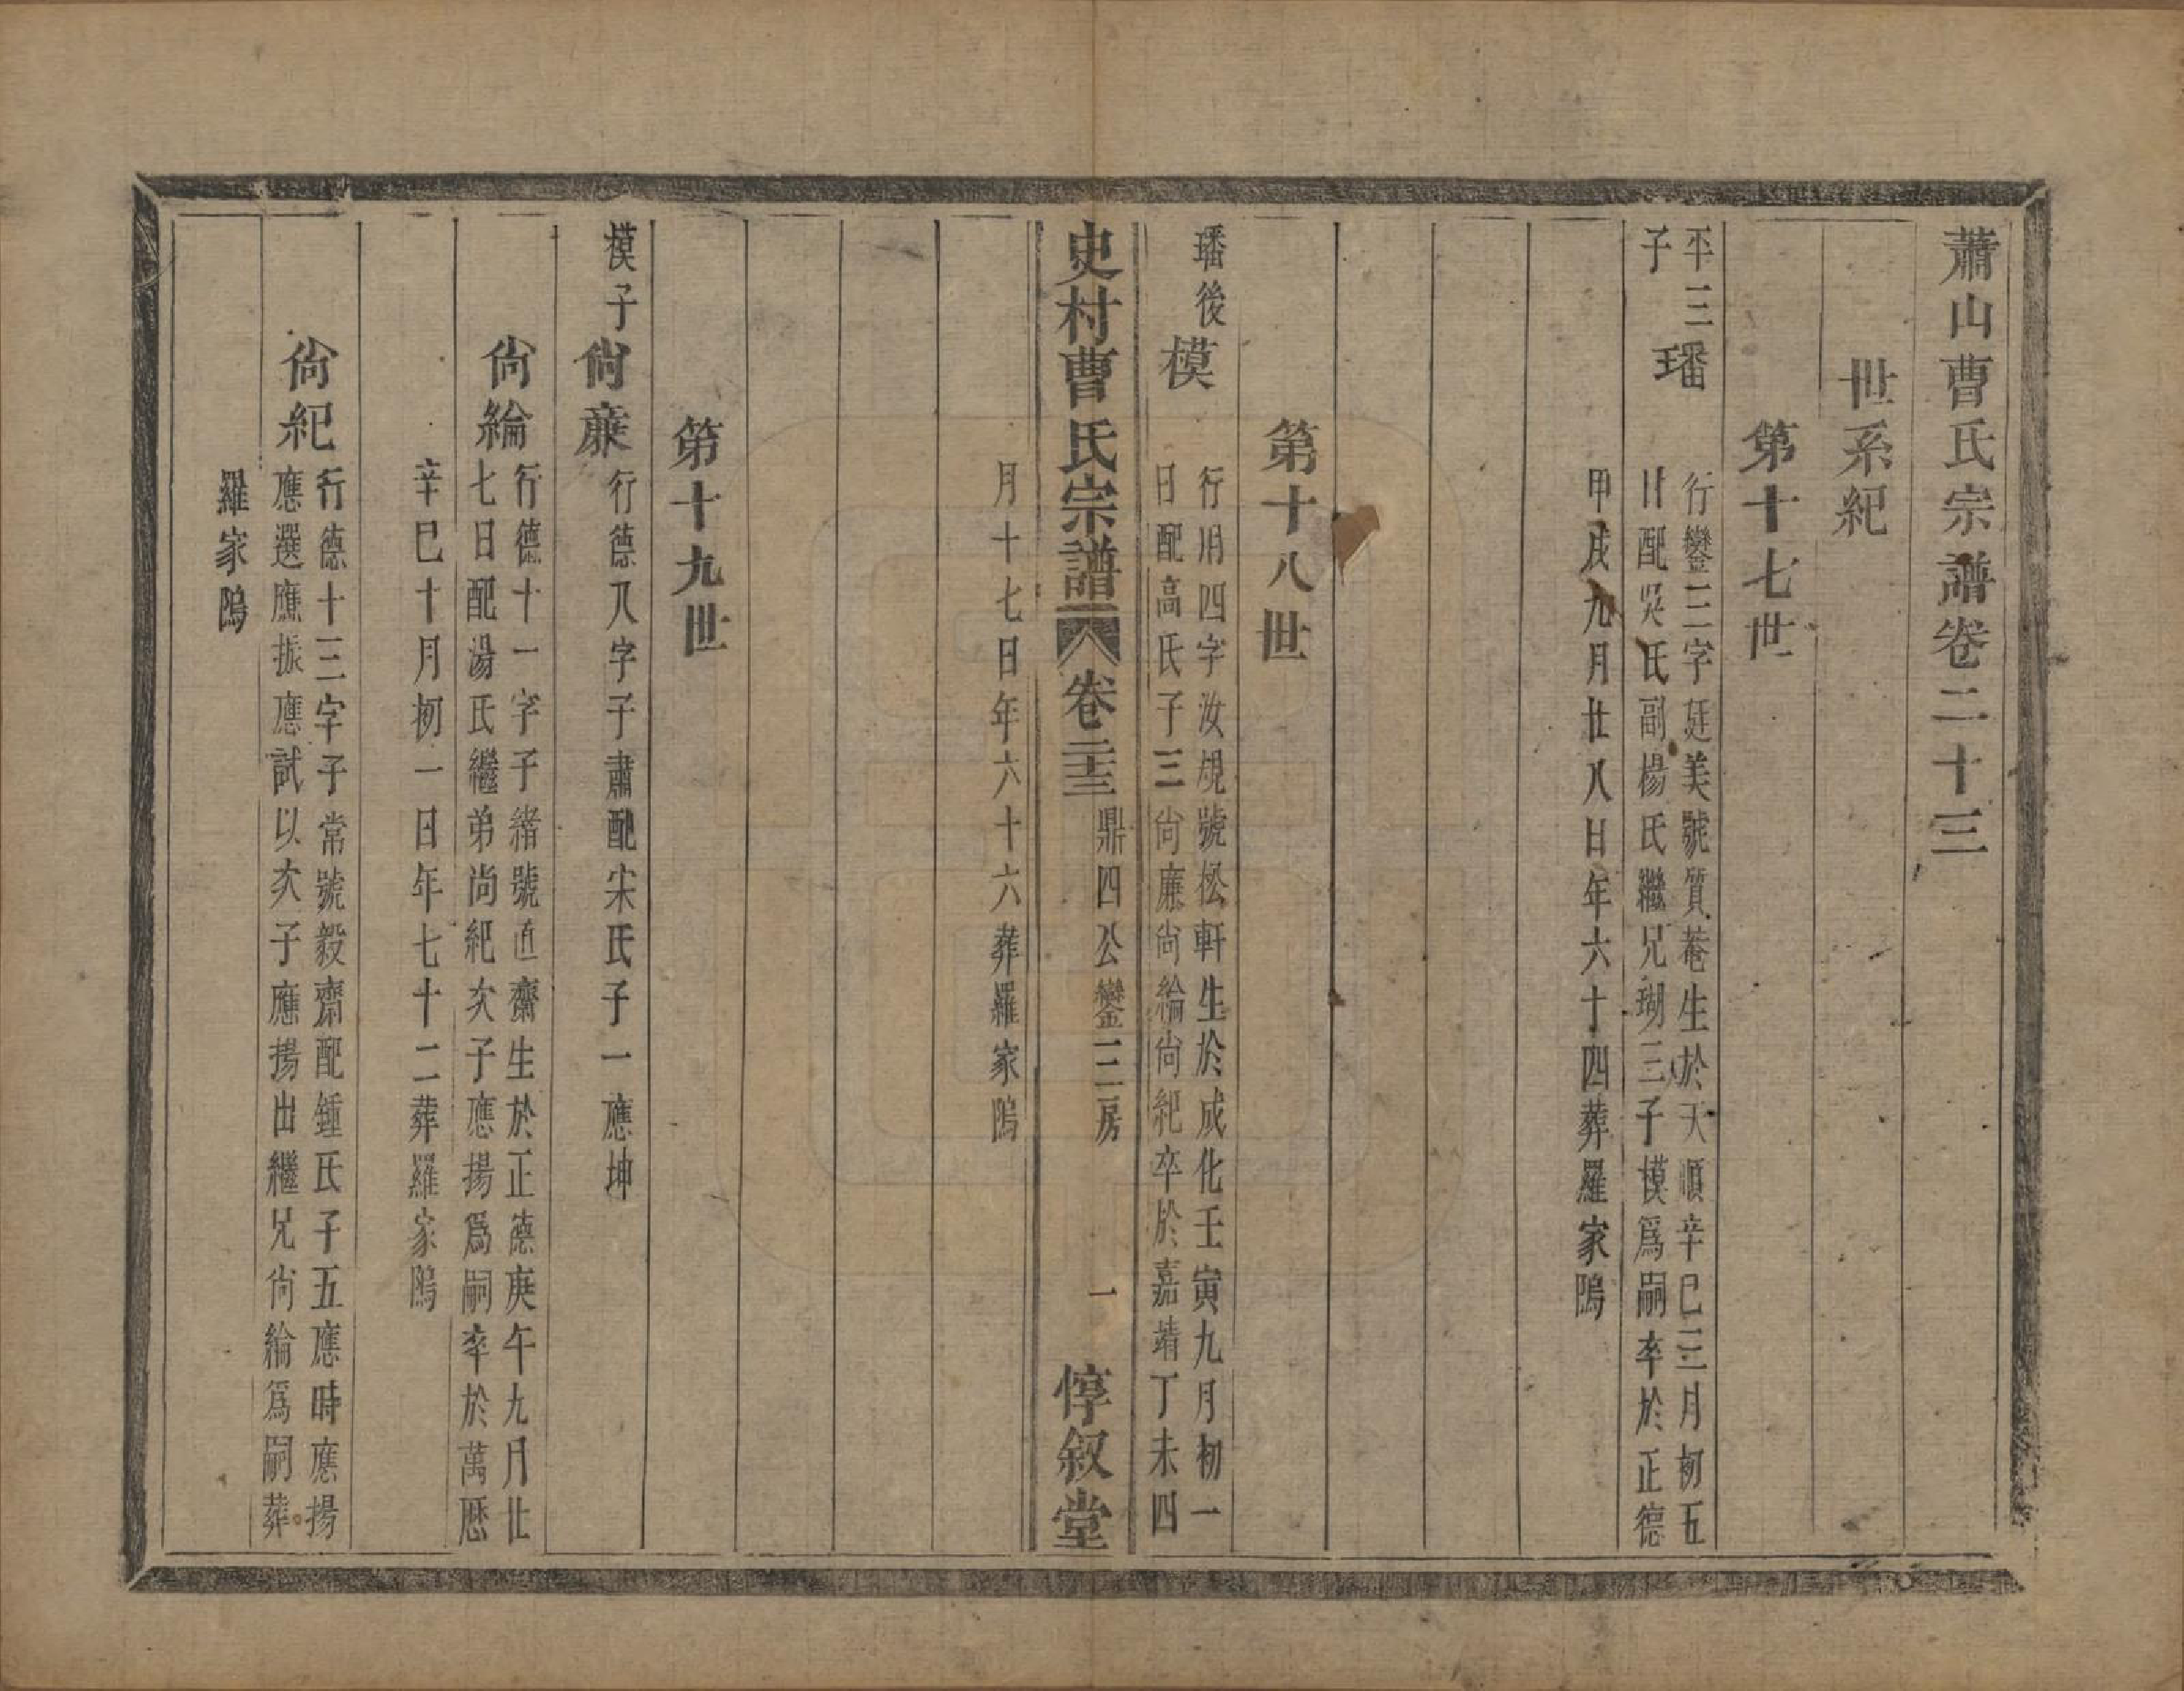 蕭山曹氏宗譜卷二十三
世系紀
第十七世
平三子
璠
行鑾三字廷美號質菴生於天順辛巳三月初五
日配吳氏副楊氏繼兄瑚三子模爲嗣卒於正德
甲戌九月廿八日年六十四葬羅家隖
第十八世
璠後
模
行用四字汝規號松軒生於成化壬寅九月初一
日配高氏子三尙廉尙綸尙紀卒於嘉靖丁未四
史村曹氏宗譜 卷二十三 鼎四公鑾三房 一 惇叙堂
月十七日年六十六葬羅家隖
第十九世
模子
尙廉
行德八字子肅配宋氏子一應坤
尙綸
行德十一字子緒號直齋生於正德庚午九月廿
七日配湯氏繼弟尙紀次子應揚爲嗣卒於萬歷
辛巳十月初一日年七十二葬羅家隖
尙紀
行德十三字子常號毅齋配鍾氏子五應時應揚
應選應振應試以次子應揚出繼兄尙綸爲嗣葬
羅家隖